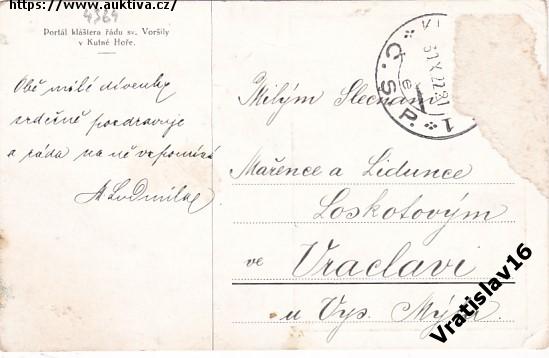 https://www.auktiva.cz/
4364
Portál kláštera řádu sv. Voršily
v Kutné Hoře.
Obě milé divenky
srdečně pozdravuje
a ráda na ně vzpomíná
M Ludmila
Milým Slečnám
Mařence a Lidunce
Loskotovým
ve
Vraclavi
u Vys. Mýta
Č. S. P.
1
e
Vratislav16